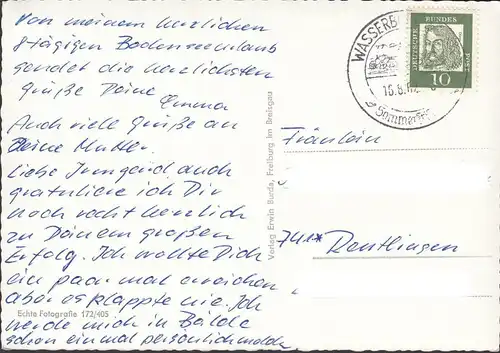 Von meinem herzlichen
8tägigen Bodenseeurlaub
sendet die herzlichsten
Grüße Deine
Emma
Auch viele Grüße an
Deine Mutter.
Liebe Irmgard, auch
gratuliere ich Dir
noch recht herzlich
zu Deinem großen
Erfolg. Ich wollte Dich
ein paar mal erreichen
aber es klappte nie. Ich
werde mich in Bälde
schon einmal persönlich melden.
Echte Fotografie 172/405
Verlag Erwin Burda, Freiburg im Breisgau
WASSERB
Sommerfr
DEUTSCHE BUNDES POST
10
Fräulein
741* Reutlingen